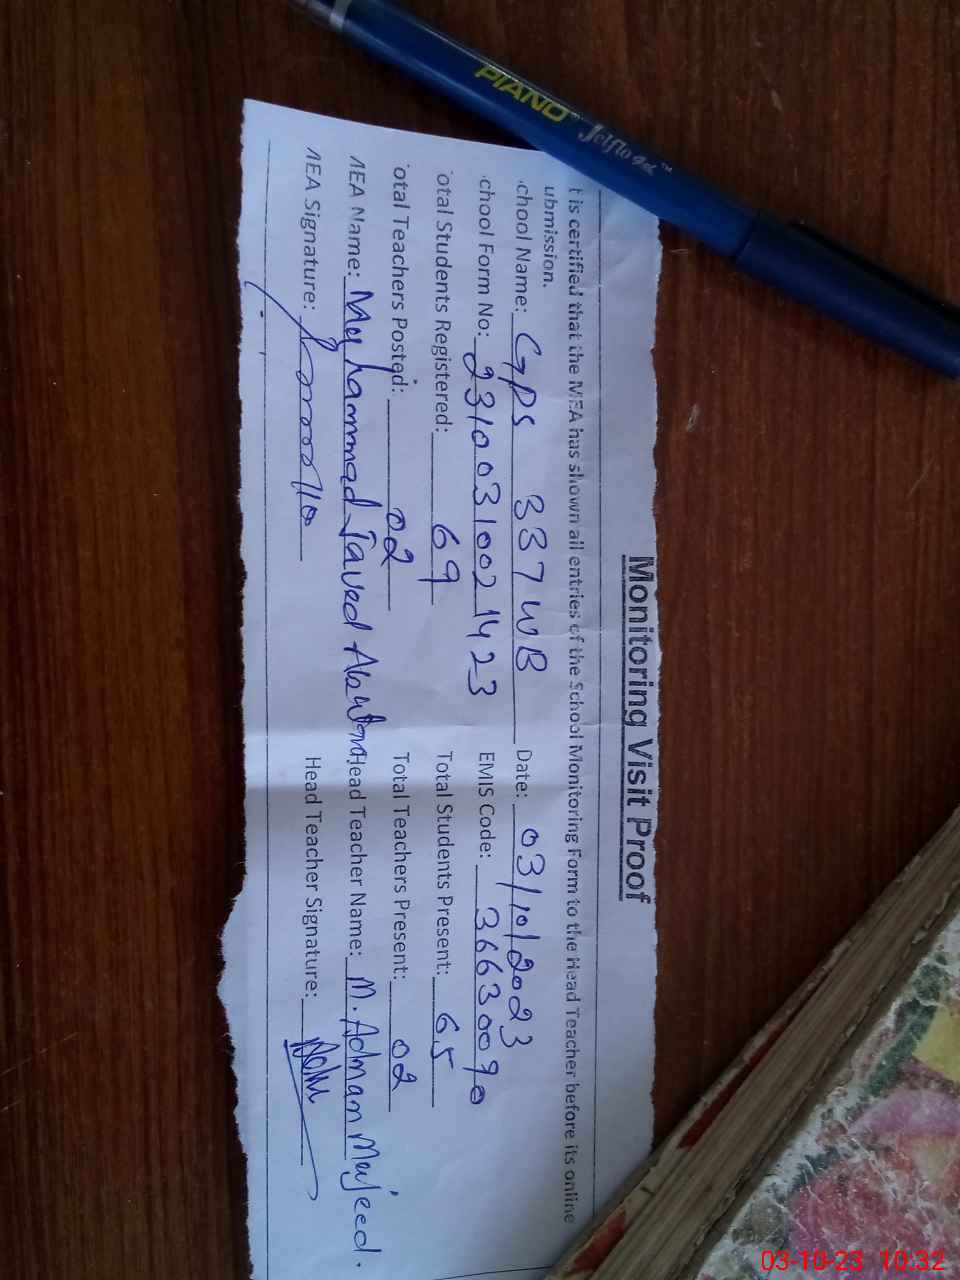 PIANO Jelflo gel™
Monitoring Visit Proof
t is certified that the MEA has shown all entries of the School Monitoring Form to the Head Teacher before its online
ubmission.
chool Name: GPS 337 WB Date: 03/10/2023
chool Form No: 2310031002 1423 EMIS Code: 36630090
otal Students Registered: 69 Total Students Present: 65
otal Teachers Posted: 02 Total Teachers Present: 02
MEA Name: Muhammad Javed Head Teacher Name: M. Adnan Majeed.
MEA Signature: Head Teacher Signature:
03-10-23 10:32